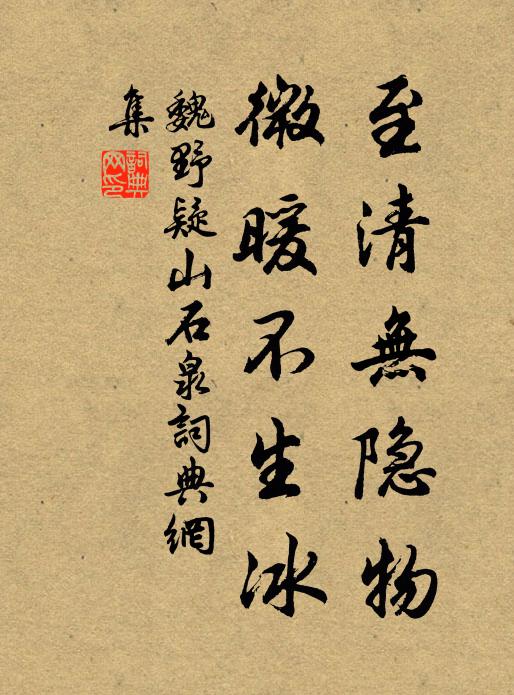 至清無隐物
微暖不生冰
魏野疑山石泉詞典網
集
詞典
网印